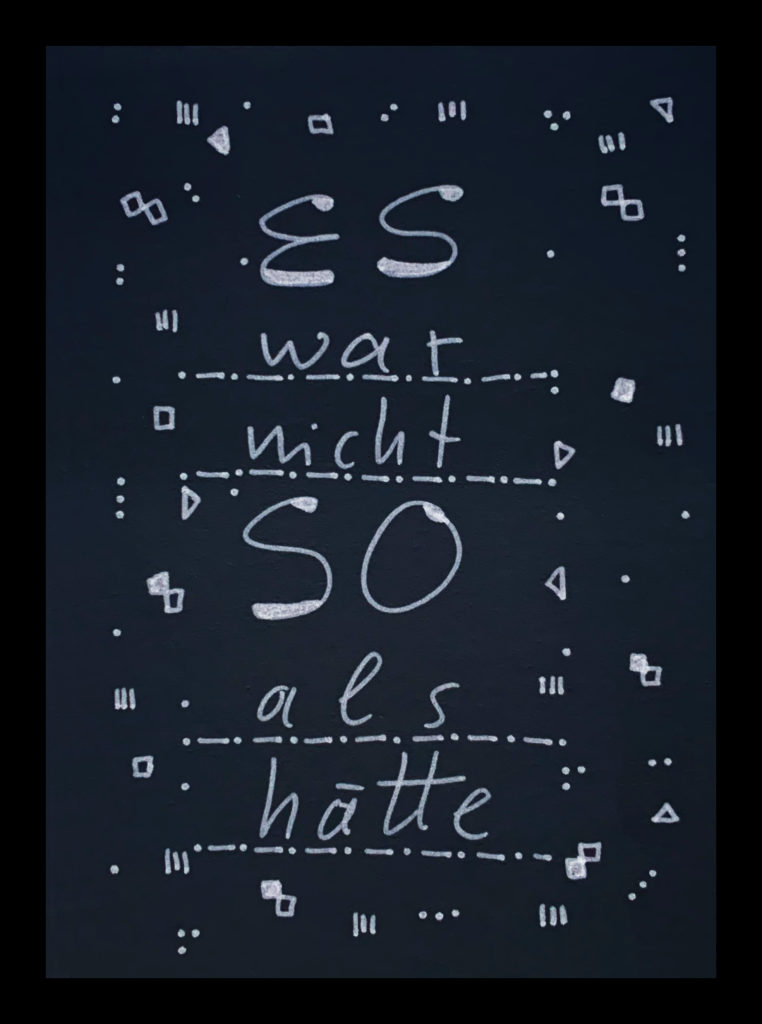 ES
war
nicht
SO
als
hätte